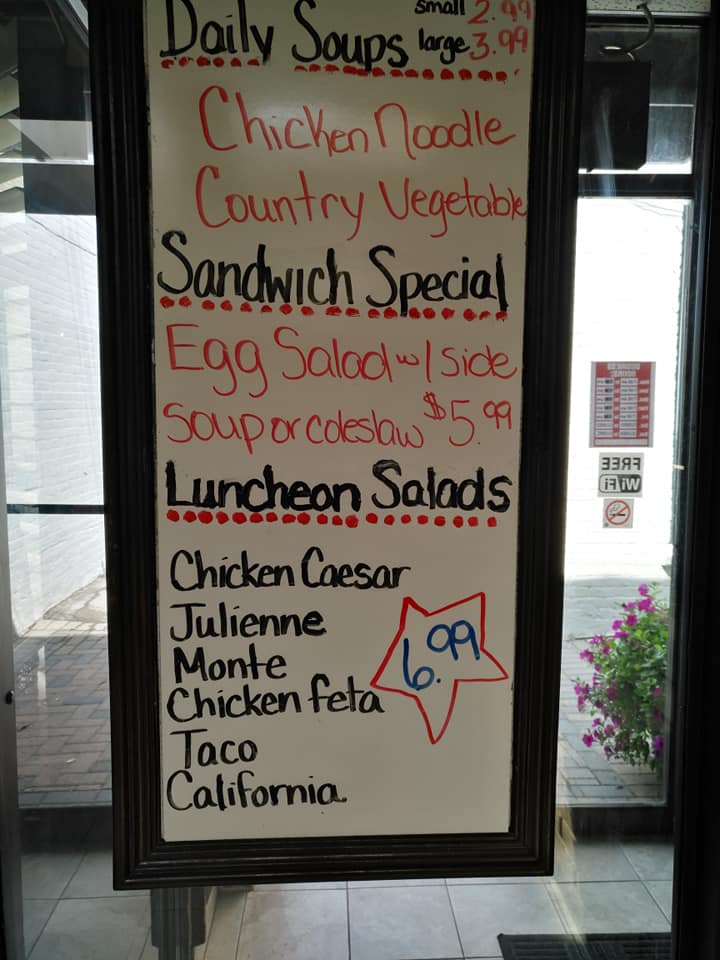 Daily Soups small 2.99
large 3.99
Chicken Noodle
Country Vegetable
Sandwich Special
Egg Salad w/ side
soup or coleslaw $5.99
Luncheon Salads
Chicken Caesar
Julienne
Monte
6.99
Chicken feta
Taco
California
FREE
WiFi